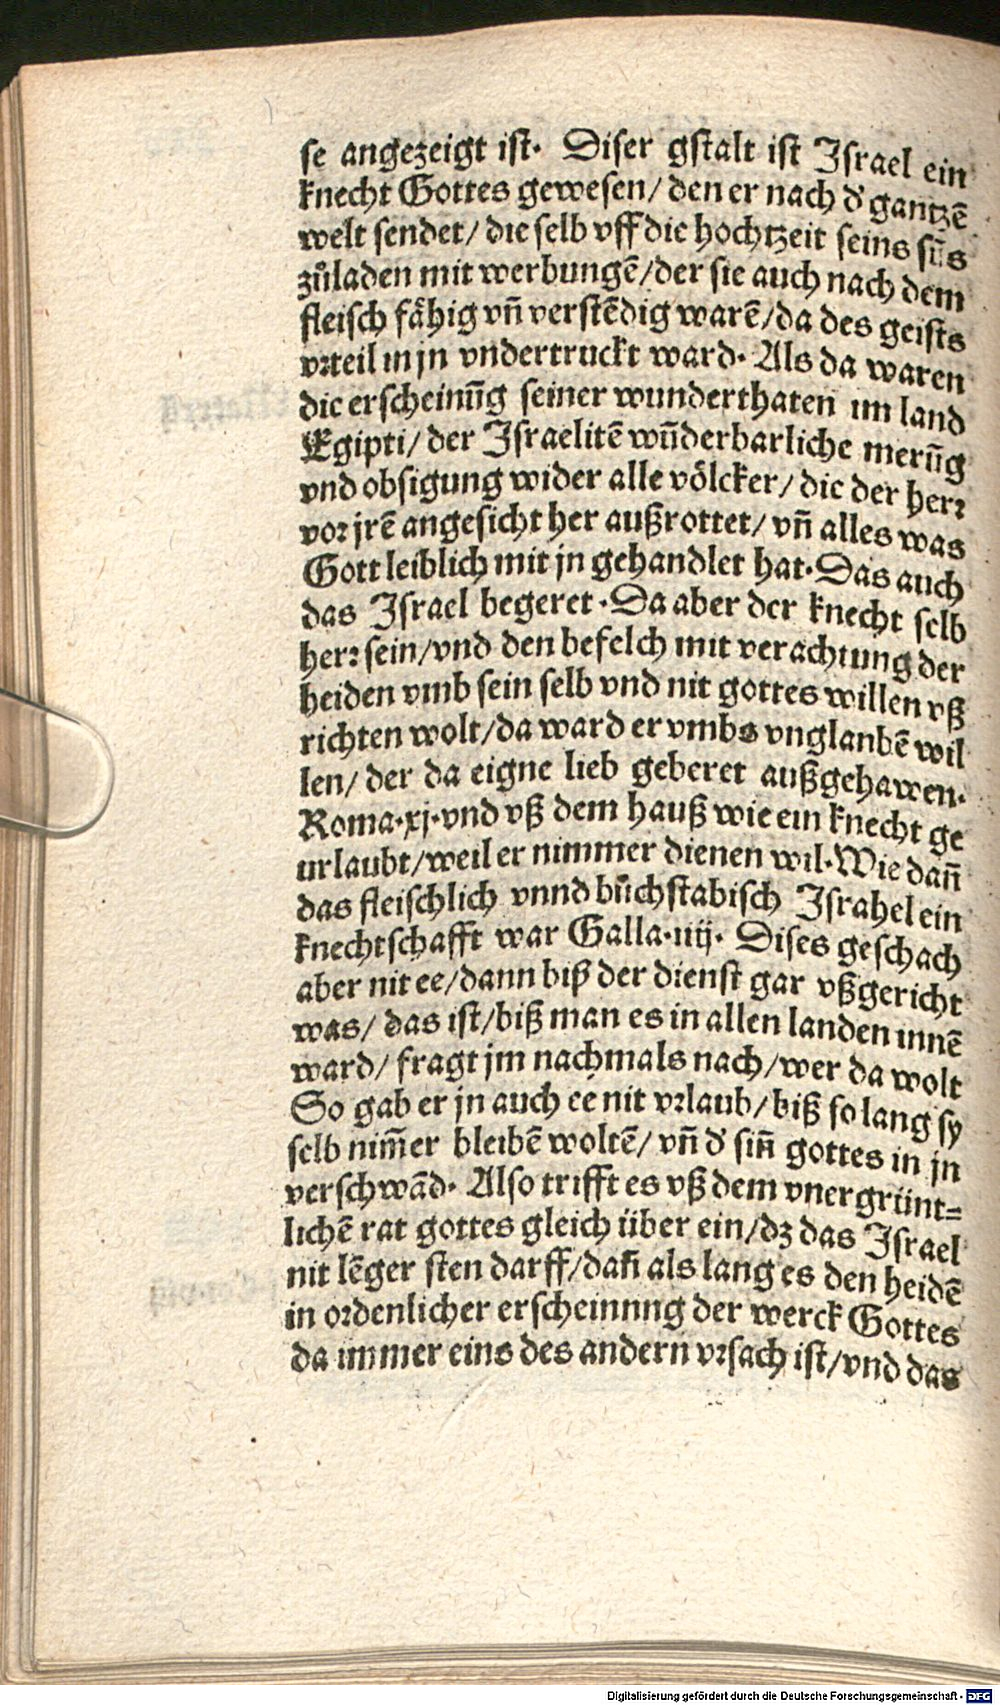 se angezeigt ist. Diser gstalt ist Israel ein
knecht Gottes gewesen/ den er nach d' gantzē
welt sendet/ die selb vff die hochtzeit seins sūs
zůladen mit werbungē/der sie auch nach dem
fleisch fåhig vn̄ verstēdig warē/da des geists
vrteil in jn vndertruckt ward. Als da waren
die erscheinūg seiner wunderthaten im land
Egipti/ der Israelitē wūderbarliche merūg
vnd obsigung wider alle vŏlcker/ die der herr
vor jrē angesicht her außrottet/ vn̄ alles was
Gott leiblich mit jn gehandlet hat. Das auch
das Israel begeret. Da aber der knecht selb
herr sein/vnd den befelch mit verachtung der
heiden vmb sein selb vnd nit gottes willen vß
richten wolt/da ward er vmbs vnglanbē wil
len/ der da eigne lieb geberet außgehawen.
Roma.xj.vnd vß dem hauß wie ein knecht ge
urlaubt/weil er nimmer dienen wil. Wie dan̄
das fleischlich vnnd bůchstabisch Israhel ein
knechtschafft war Galla.iiij. Dises geschach
aber nit ee/dann biß der dienst gar vßgericht
was/ das ist/biß man es in allen landen innē
ward/ fragt jm nachmals nach/wer da wolt
So gab er jn auch ee nit vrlaub/biß so lang sy
selb nim̄er bleibē woltē/ vn̄ d' sin̄ gottes in jn
verschwād. Also trifft es vß dem vnergrünt=
lichē rat gottes gleich über ein/dz das Israel
nit lēger sten darff/dan̄ als lang es den heidē
in ordenlicher erscheinnng der werck Gottes
da immer eins des andern vrsach ist/vnd das
Digitalisierung gefördert durch die Deutsche Forschungsgemeinschaft - DFG